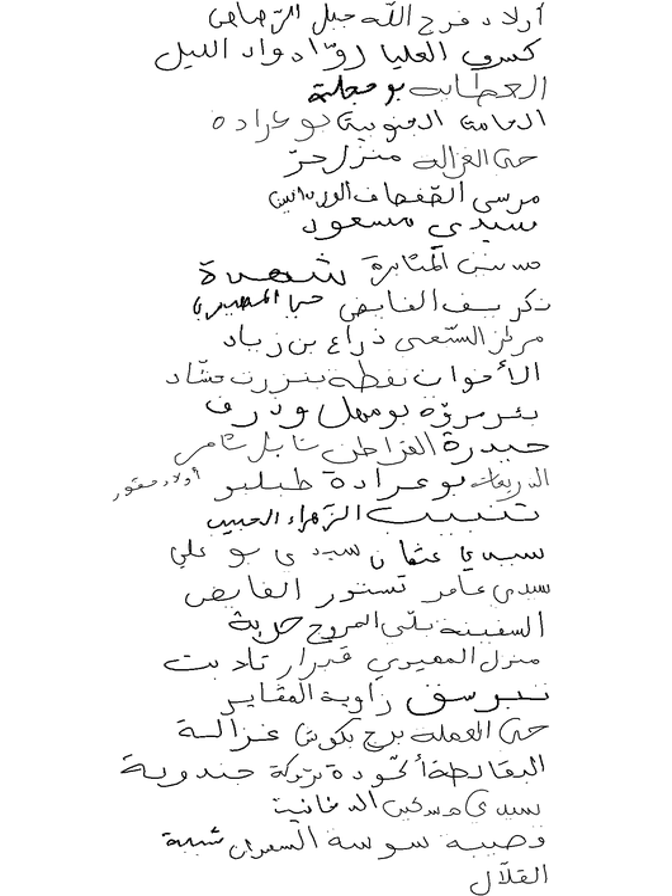 أولاد فرج الله جبل الرصاص
كسرى العليا روّاد واد الليل
العطايا بو مجلة
الحامة الجنوبية بو عرادة
حي الغزالة منزل حرّ
مرسى القفصاف الوردانين
سيدي مسعود
مسنين المثابرة شهدة
ذكر يسف الفايض حي المصيدي
مركز السّعي ذراع بن زياد
الأخوات نفطة بنزرت حشّاد
بئر مروّة بومهل وذرف
حيدرة القراطن نابل شامر
الدريعات بو عرادة طبلبو أولاد معتور
تنبيب الزّهراء الحبيب
سيدي عثمان سيدي بو علي
سيدي عامر تستور الفايض
السفينة بلّي المروج جربة
منزل المعيري قبرار تادبت
تبرسق زاوية المقايز
حي العملة برج بكوش غزالة
البقالطة أكّودة برّوكة جندوبة
سيدي مسكين الدخانية
وصيبة سوسة السعدان شبيبة
القلال